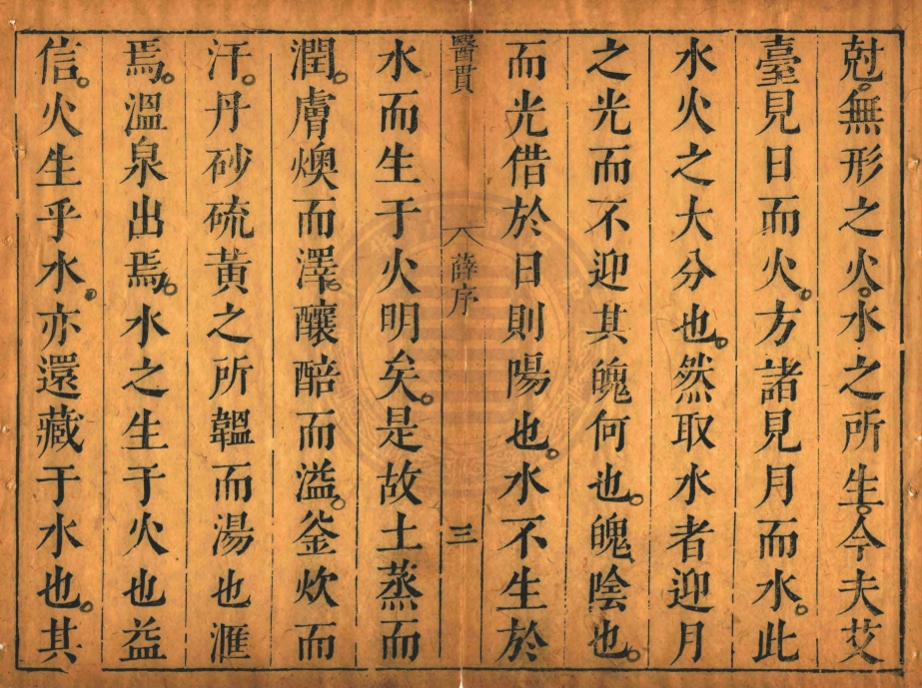 尅。無形之火。水之所生。今夫艾
臺見日而火。方諸見月而水。此
水火之大分也。然取水者迎月
之光而不迎其魄何也。魄陰也。
而光借於日則陽也。水不生於
醫貫 薛序 三
水而生于火明矣。是故土蒸而
潤。膚燠而澤。釀醅而溢。釜炊而
汗。丹砂硫黃之所韞而湯也滙
焉。溫泉出焉。水之生于火也益
信。火生乎水。亦還藏于水也。其